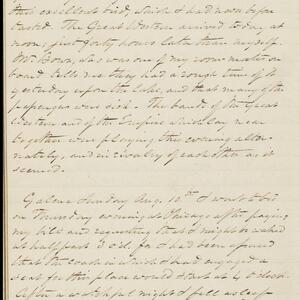 this excellent bird, which I had never before
tasted. The Great Western arrived today at
noon, just forty hours later than myself.
Mr. Brown, who was one of my room-mates on
board tells me they had a rough time of it
yesterday upon the lake, and that many of the
passengers were sick. The bands of the Great
Western and of the Empire which lay near
together were playing this evening alter-
nately, and in rivalry of each other as it
seemed.
Galena Sunday Aug. 10th I went to bed
on Thursday evening at Chicago after paying
my bill and requesting that I might be waked
at half past 3 o'cl. for I had been assured
that the coach in which I had engaged a
seat for this place would start at 4 o'clock.
After a watchful night I fell asleep